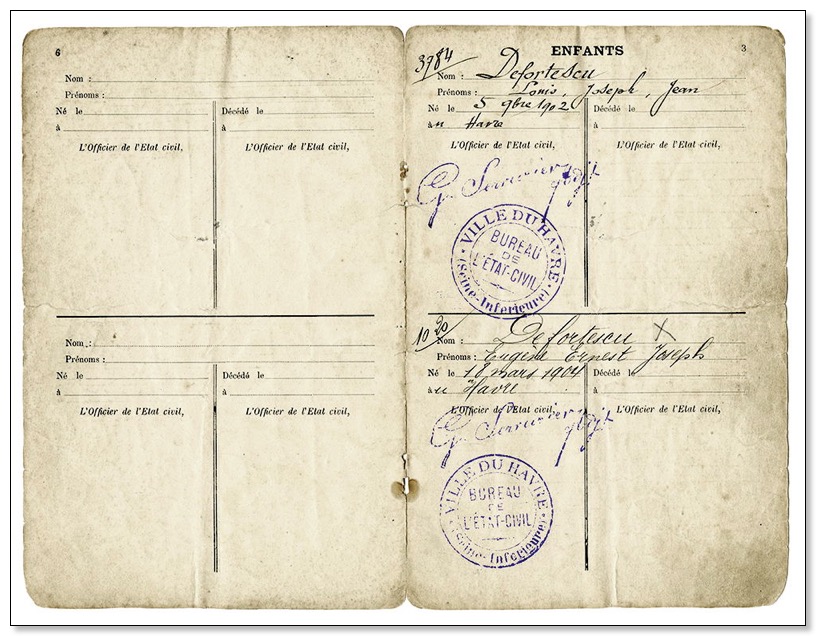 6
Nom :
Prénoms :
Né le Décédé le
à à
L'Officier de l'Etat civil, L'Officier de l'Etat civil,
Nom :
Prénoms :
Né le Décédé le
à à
L'Officier de l'Etat civil, L'Officier de l'Etat civil,
ENFANTS 3
3784
Nom : Defortescu
Prénoms : Louis, Joseph, Jean
Né le 5 9bre 1902 Décédé le
à u Havre à
L'Officier de l'Etat civil, L'Officier de l'Etat civil,
VILLE DU HAVRE
BUREAU
DE
L'ÉTAT-CIVIL
(Seine-Inférieure)
1020
Nom : Defortescu X
Prénoms : Eugène Ernest Joseph
Né le 18 mars 1904 Décédé le
à u Havre à
L'Officier de l'Etat civil, L'Officier de l'Etat civil,
VILLE DU HAVRE
BUREAU
DE
L'ÉTAT-CIVIL
(Seine-Inférieure)